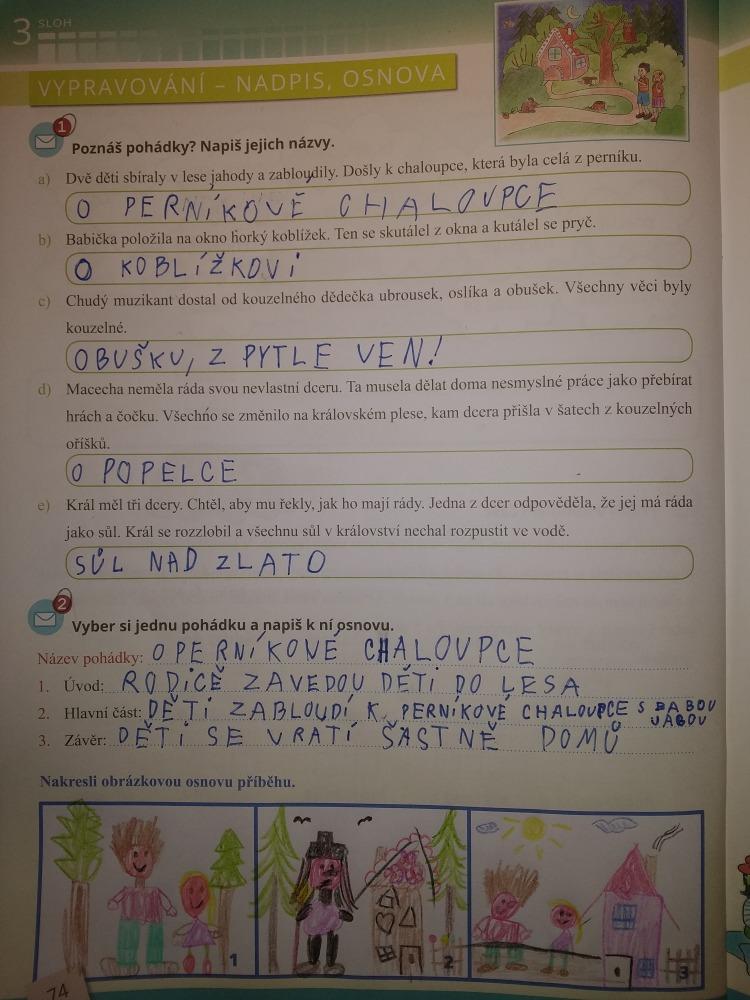 3 SLOH
VYPRAVOVÁNÍ – NADPIS, OSNOVA
1
Poznáš pohádky? Napiš jejich názvy.
a) Dvě děti sbíraly v lese jahody a zabloudily. Došly k chaloupce, která byla celá z perníku.
O PERNÍKOVÉ CHALOUPCE
b) Babička položila na okno horký koblížek. Ten se skutálel z okna a kutálel se pryč.
O KOBLÍŽKOVI
c) Chudý muzikant dostal od kouzelného dědečka ubrousek, oslíka a obušek. Všechny věci byly
kouzelné.
OBUŠKU, Z PYTLE VEN!
d) Macecha neměla ráda svou nevlastní dceru. Ta musela dělat doma nesmyslné práce jako přebírat
hrách a čočku. Všechno se změnilo na královském plese, kam dcera přišla v šatech z kouzelných
oříšků.
O POPELCE
e) Král měl tři dcery. Chtěl, aby mu řekly, jak ho mají rády. Jedna z dcer odpověděla, že jej má ráda
jako sůl. Král se rozzlobil a všechnu sůl v království nechal rozpustit ve vodě.
SŮL NAD ZLATO
2
Vyber si jednu pohádku a napiš k ní osnovu.
Název pohádky: O PERNÍKOVÉ CHALOUPCE
1. Úvod: RODIČĚ ZAVEDOU DĚTI DO LESA
2. Hlavní část: DĚTI ZABLOUDÍ K PERNÍKOVÉ CHALOUPCE S BABOU
JABOU
3. Závěr: DĚTI SE VRATÍ ŠASTNĚ DOMŮ
Nakresli obrázkovou osnovu příběhu.
1
2
3
74